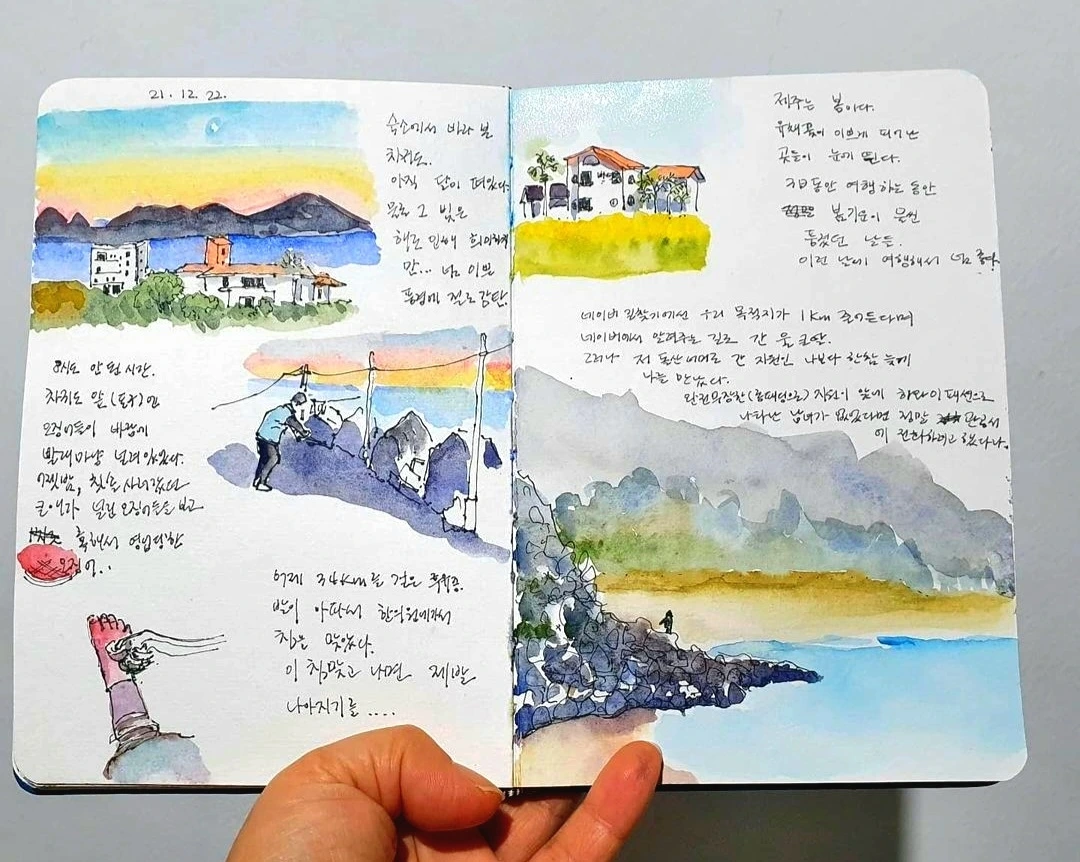 21. 12. 22.
숙소에서 바라 본
차귀도.
아직 달이 떠있다.
물론 그 빛은
해로 인해 희미하게
만... 너무 이쁜
풍경에 절로 감탄.
8시도 안 된 시간.
차귀도 앞 (포구)엔
오징어들이 바람에
빨래마냥 널려있었다.
어젯밤,
널린 오징어들을 보고
혹해서 영업당한
오징어..
어제 34km를 걸은 후유증.
발이 아파서 한의원에가서
침을 맞았다.
이 침맞고 나면 제발
나아지기를 ....
제주는 봄이다.
유채꽃이 이쁘게 피어난
곳들이 눈에 띈다.
3일동안 여행하는 동안
봄기운이 물씬
풍겼던 날들.
이런 날에 여행해서 너무 좋다.
네이버 길찾기에선 우리 목적지가 1km 줄어든다며
네이버에서 알려주는 길로 간 울
그러나 저 돌산 너머로 간 지원인 나보다 한참 늦게
나를 만났다.
완전무장한 지원이 앞에 하와이 패션으로
나타난 남녀가 없었다면 정말 관광서
에 전화하려고 했다나.